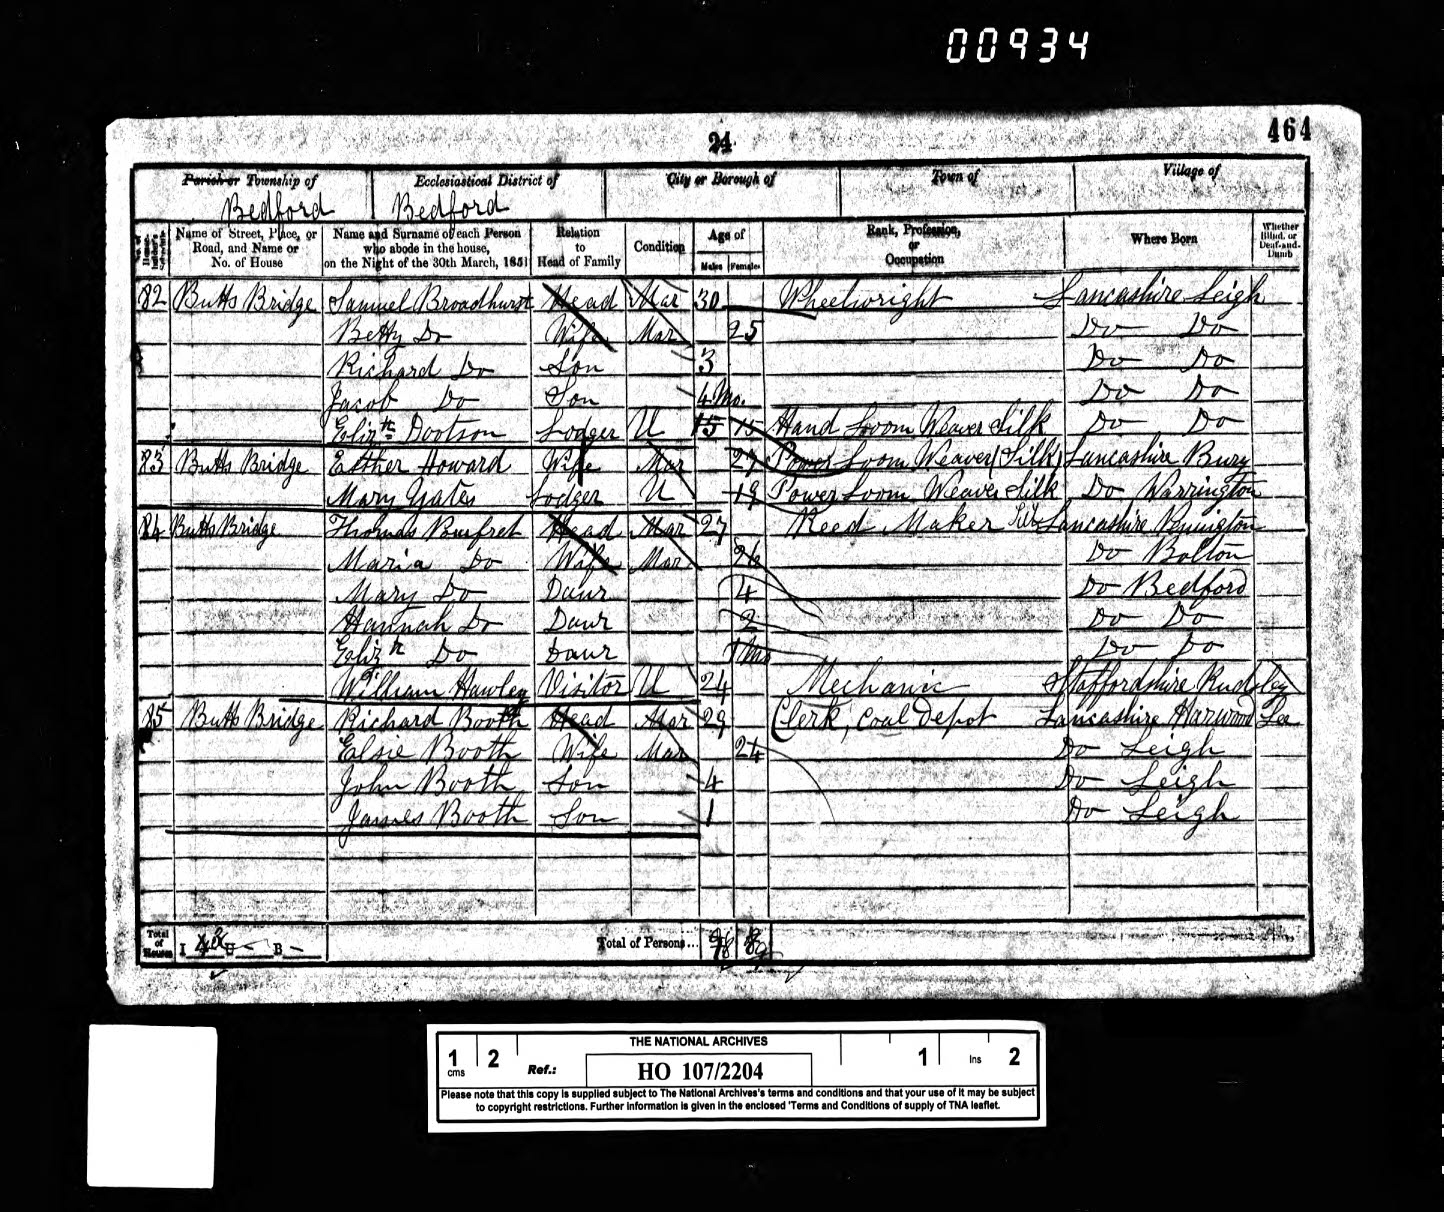 00934
464
24
Parish or Township of Ecclesiastical District of City or Borough of Town of Village of
Bedford Bedford
Name of Street, Place, or Road, and Name or No. of House Name and Surname of each Person who abode in the house, on the Night of the 30th March, 1851 Relation to Head of Family Condition Age of Males Females Rank, Profession, or Occupation Where Born Whether Blind, or Deaf-and-Dumb
82 Butts Bridge Samuel Broadhurst Head Mar 30 Wheelwright Lancashire Leigh
Betty Do Wife Mar 25 Do Do
Richard Do Son 3 Do Do
Jacob Do Son 4 Mo. Do Do
Elizth Dootson Lodger U 15 15 Hand Loom Weaver Silk Do Do
83 Butts Bridge Esther Howard Wife Mar 27 Power Loom Weaver (Silk) Lancashire Bury
Mary Yates Lodger U 19 Power Loom Weaver Silk Do Warrington
84 Butts Bridge Thomas Pomfret Head Mar 27 Reed Maker Lancashire Penington
Maria Do Wife Mar 26 Do Bolton
Mary Do Daur 4 Do Bedford
Hannah Do Daur 2 Do Do
Elizth Do Daur 1 Mo Do Do
William Hawley Visitor U 24 Mechanic Staffordshire Rudgley
85 Butts Bridge Richard Booth Head Mar 29 Clerk, Coal Depot Lancashire Harwood Lee
Elsie Booth Wife Mar 24 Do Leigh
John Booth Son 4 Do Leigh
James Booth Son 1 Do Leigh
Total of Houses I U - B - Total of Persons...
1 cms 2 THE NATIONAL ARCHIVES 1 Ins 2
Ref.: HO 107/2204
Please note that this copy is supplied subject to The National Archives's terms and conditions and that your use of it may be subject
to copyright restrictions. Further information is given in the enclosed 'Terms and Conditions of supply of TNA leaflet.